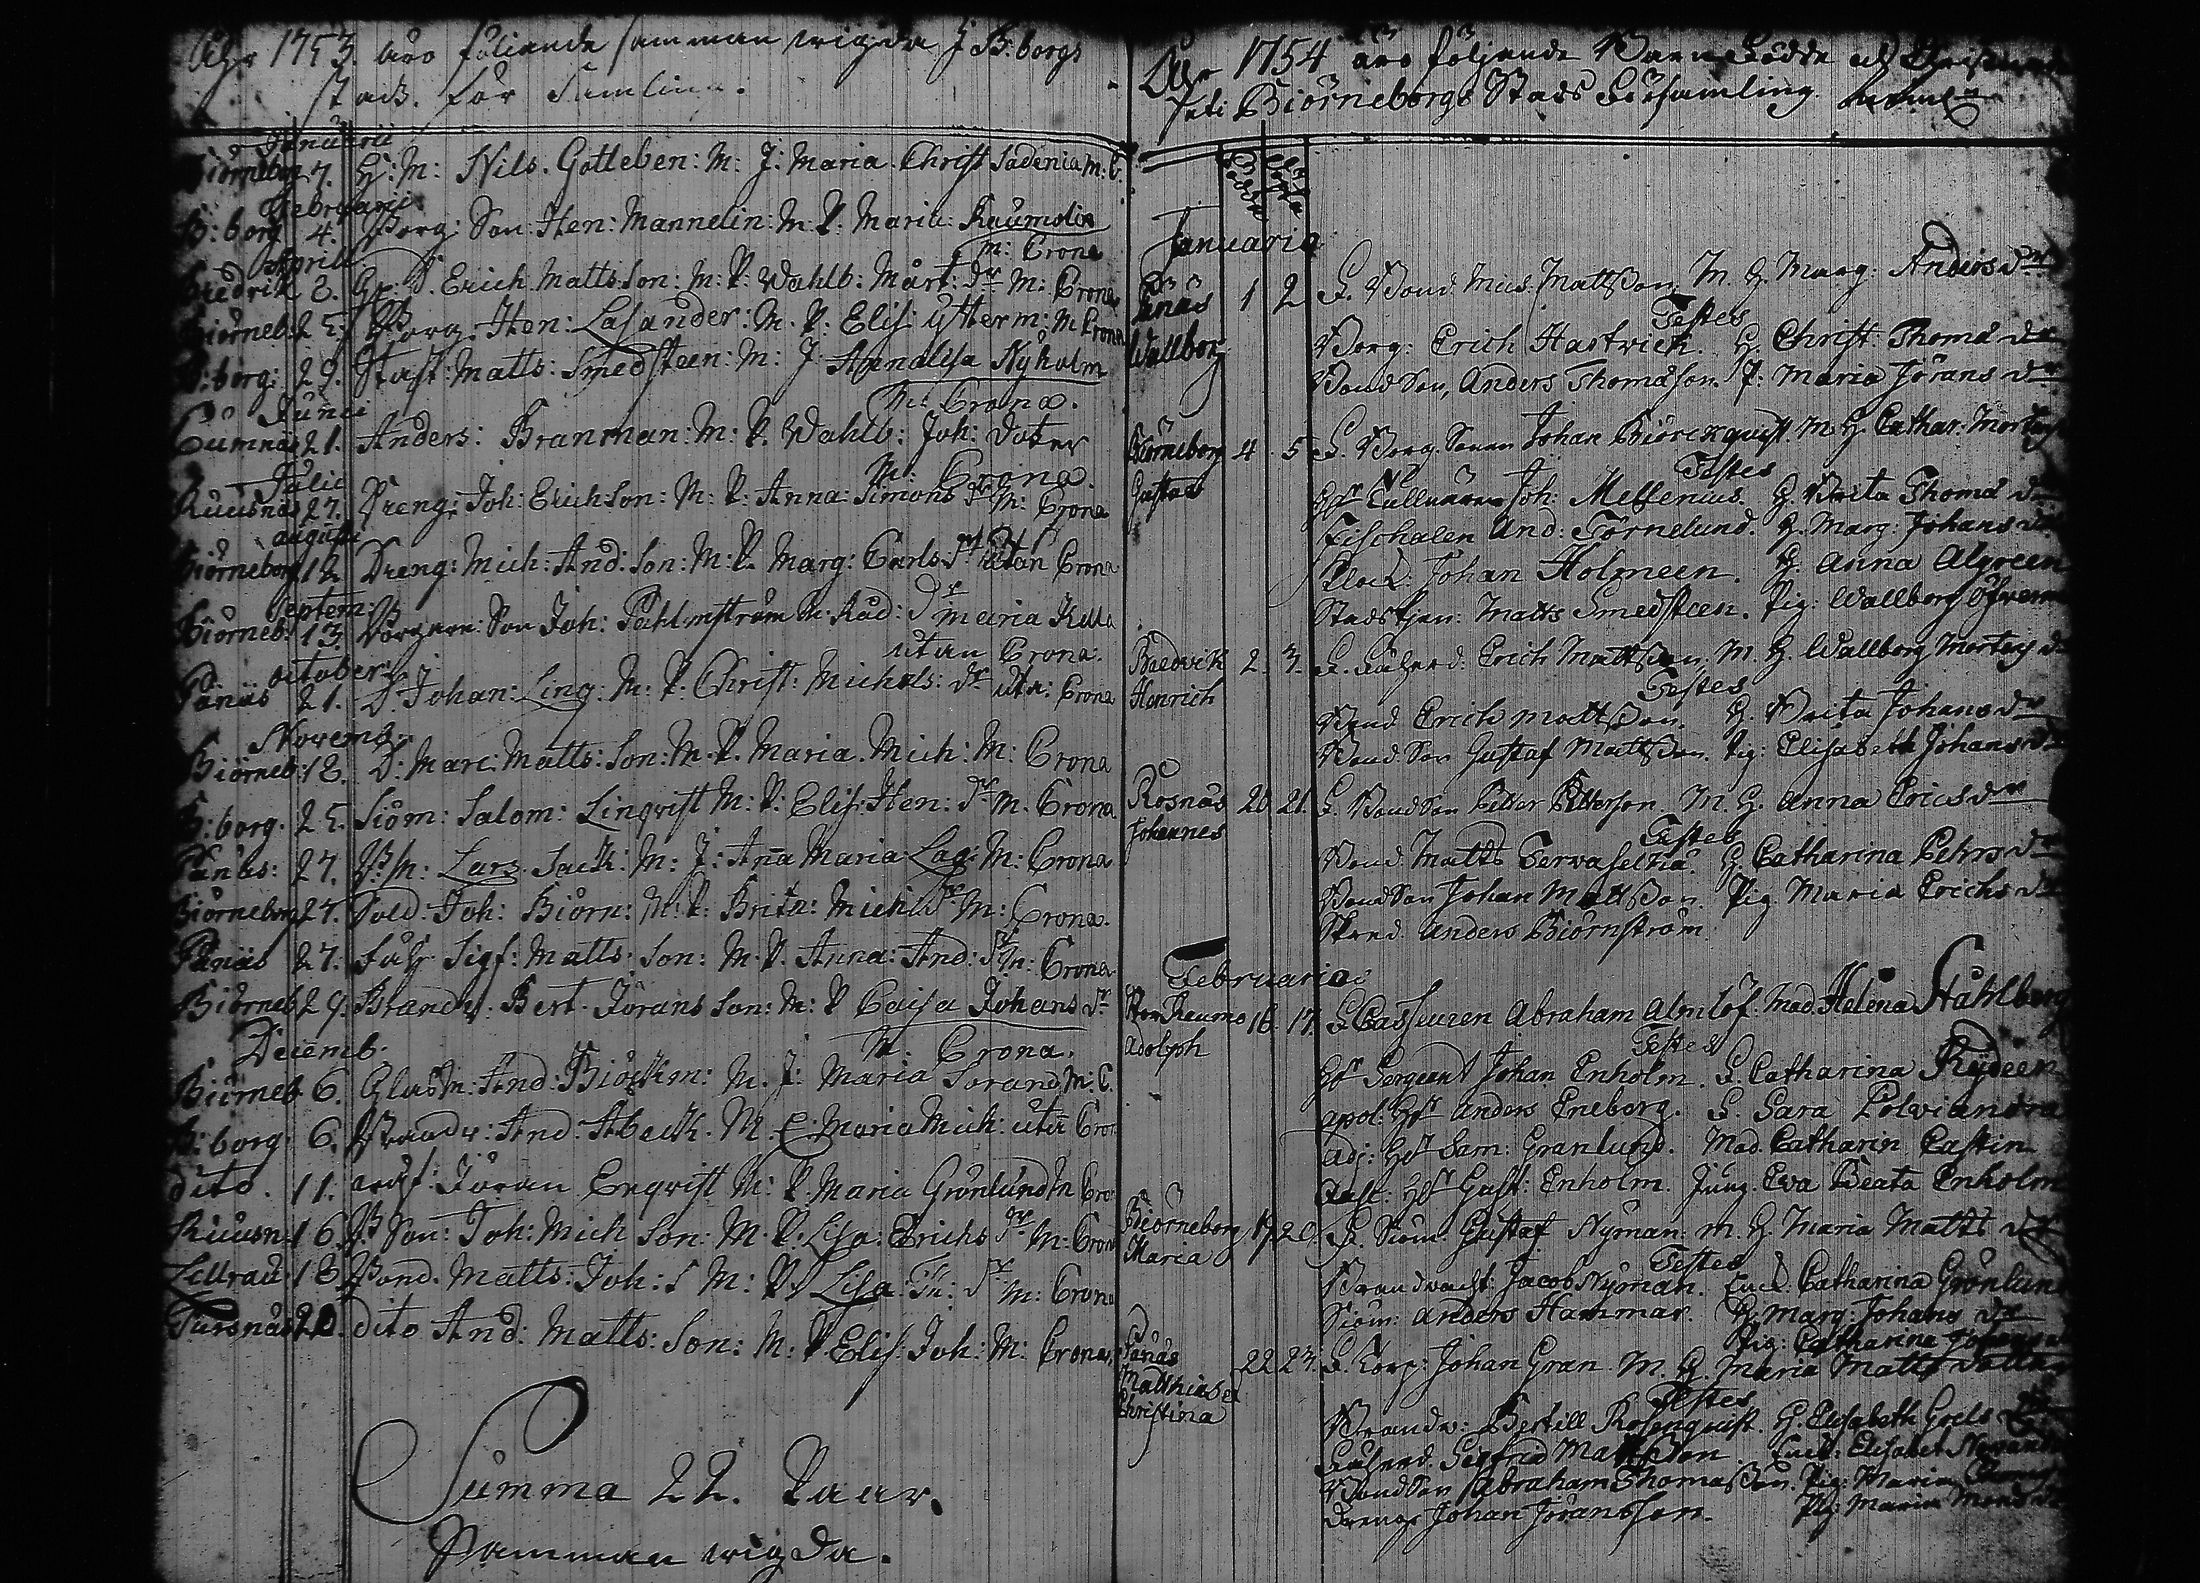 Åhr 1753. äro följande samman wigda i B:borgs
stads. för samling.
Januarii
Biörneborg 7. H: M: Nils. Gotleben: M: J: Maria. Christ Sadenia M: C.
Februarii
B:borg 4. Borg: Son: Hen: Mannelin: M: P. Maria: Raumolin
m: Crona
Aprill
Bredvik 8. Erich Matts: Son: M: P: Wahlb: Mårt: dr M: Crona
Biörneb: 25. Borg. Hen: Lasander: M. P: Elis: Ytterm: M Crona
B:borg: 29. Matts: Smedsteen: M: J: Annalisa Nyholm
M: Crona.
Junii
21. Anders: Branman: M: P. Wahlb: Joh: doter
M: Crona.
Julii
Ruusnäs 27. Dreng: Joh: Erichson: M: P: Anna: Simons dr M: Crona
augusti
Biörneborg 12 Dreng: Mich: And: Son: M: P. Marg: Carls: dr utan Crona
Septem:
Biörneb: 13. Borgare: Son Joh: Pahlmström M. Råd: dr Maria Kella
utan Crona.
october:
Pänäs 21. D. Johan: Ling: M: P. Christ: Michels: dr uta: Crona
Novemb:
Biörneb: 18. D: Marc: Matts: Son: M. P. Maria. Mich: M: Crona
B:borg. 25. Siöm: Salom: Linqvist M: P: Elis: Hen: dr M. Crona
Pänäs: 27. Lars Sack: M: J: Anna Maria Lag: M: Crona
Biörneborg 27. Sold: Joh: Biörn: M: P: Brita: Michls dr M: Crona.
Pänäs 27. Sigf: Matts: Son: M. P. Anna: And: dr M: Crona
Biörneb 29. Brandv. Bert. Jörans Son: M: P Caisa Johans dr
M. Crona.
Decemb.
Biörneb 6. Glasm: And: Biöckm: M. J: Maria Sorand M: C.
B:borg. 6. Brandv: And: Abeck. M. E: Maria Mich: utan Cron
dito. 11. Jöran Enqvist M: P. Maria Grönlund M Cro
Ruusn: 16. B Son: Joh: Mich Son: M. P. Lisa: Erichs dr M: Crona
18. Bond. Matts: Joh: S M: P. Lisa: dr M: Crona
20. dito And: Matts: Son: M: P. Elis: Joh: M: Crona
Summa 22. Paar.
Samman wigda.
Åhr 1754 äro följande Barn Födde och Christnade
uti Biörneborgs Stads Församling. nemln
Födde Döpte
Januario
Pänäs 1 2 F. Bond. Mich. Mattsson M. H. Marg: Anders dr
Testes
Wallborg Borg: Erich Hastwick. H Christ: Thoma dr
Bond Son, Anders Thomason. P: Maria Jörans dr
Biörneborg 4. 5 F. Borg. Sonen Johan Biörckqvist. M. H. Cathar: Mortens
Testes
Gustav Hr Joh: Messenius. H. Brita Thoma dr
Fischalen And: Törnelund. H. Marg: Johans dr
Klock: Johan Holmeen. H. Anna Algreen
Stadstjen: Matts Smedsteen. Pig: Wallborg Öfverm
Bredvik 2. 3. F. Erich Mattsson, M. H. Wallborg Mortens dr
Testes
Henrich Bond Erich Mattsson. H. Brita Johans dr
Bond Son Gustaf Mattsson. Pig: Elisabeth Johans dr
Rosnäs 20 21. F. Bond Son Petter Petterson. M. H. Anna Erics dr
Testes
Johannes Bond Matts H. Catharina Pehrs dr
Bond Son Johan Mattsson. Pig Maria Erichs dr
Anders Biörnström
Februario
Stor Raumo 16. 17. F. Cassuren Abraham Almlöf. Mad. Helena Ståhlberg
Testes
Adolph Hr Sergeant Johan Enholm. F. Catharina Rydeen
apol. Hr Anders Eneborg. F. Sara Polviandra
adj: Hr Sam: Granlund. Mad. Catharin Castin
Hr Gust: Enholm. Jung. Eva Beata Enholm
Biörneborg 19 20 F. Siöm: Gustaf Nyman. m. H. Maria Matts dr
Testes
Maria Brandvacht: Jacob Nyman. Catharina Grönlund
Siöm: Anders Hammar. H. Marg: Johans dr
Pig: Catharina
Pänäs 22 23. F. Korp: Johan Gran. M. H. Maria Matts dotter
Matthias et Testes
Christina Brandv: Bertill Rosenqvist. H. Elisabeth Grels dr
Sigfrid Mattsson Elisabet
Bond Son Abraham Thomasson. Pig: Maria
Dreng Johan Jöransson. Pig Maria